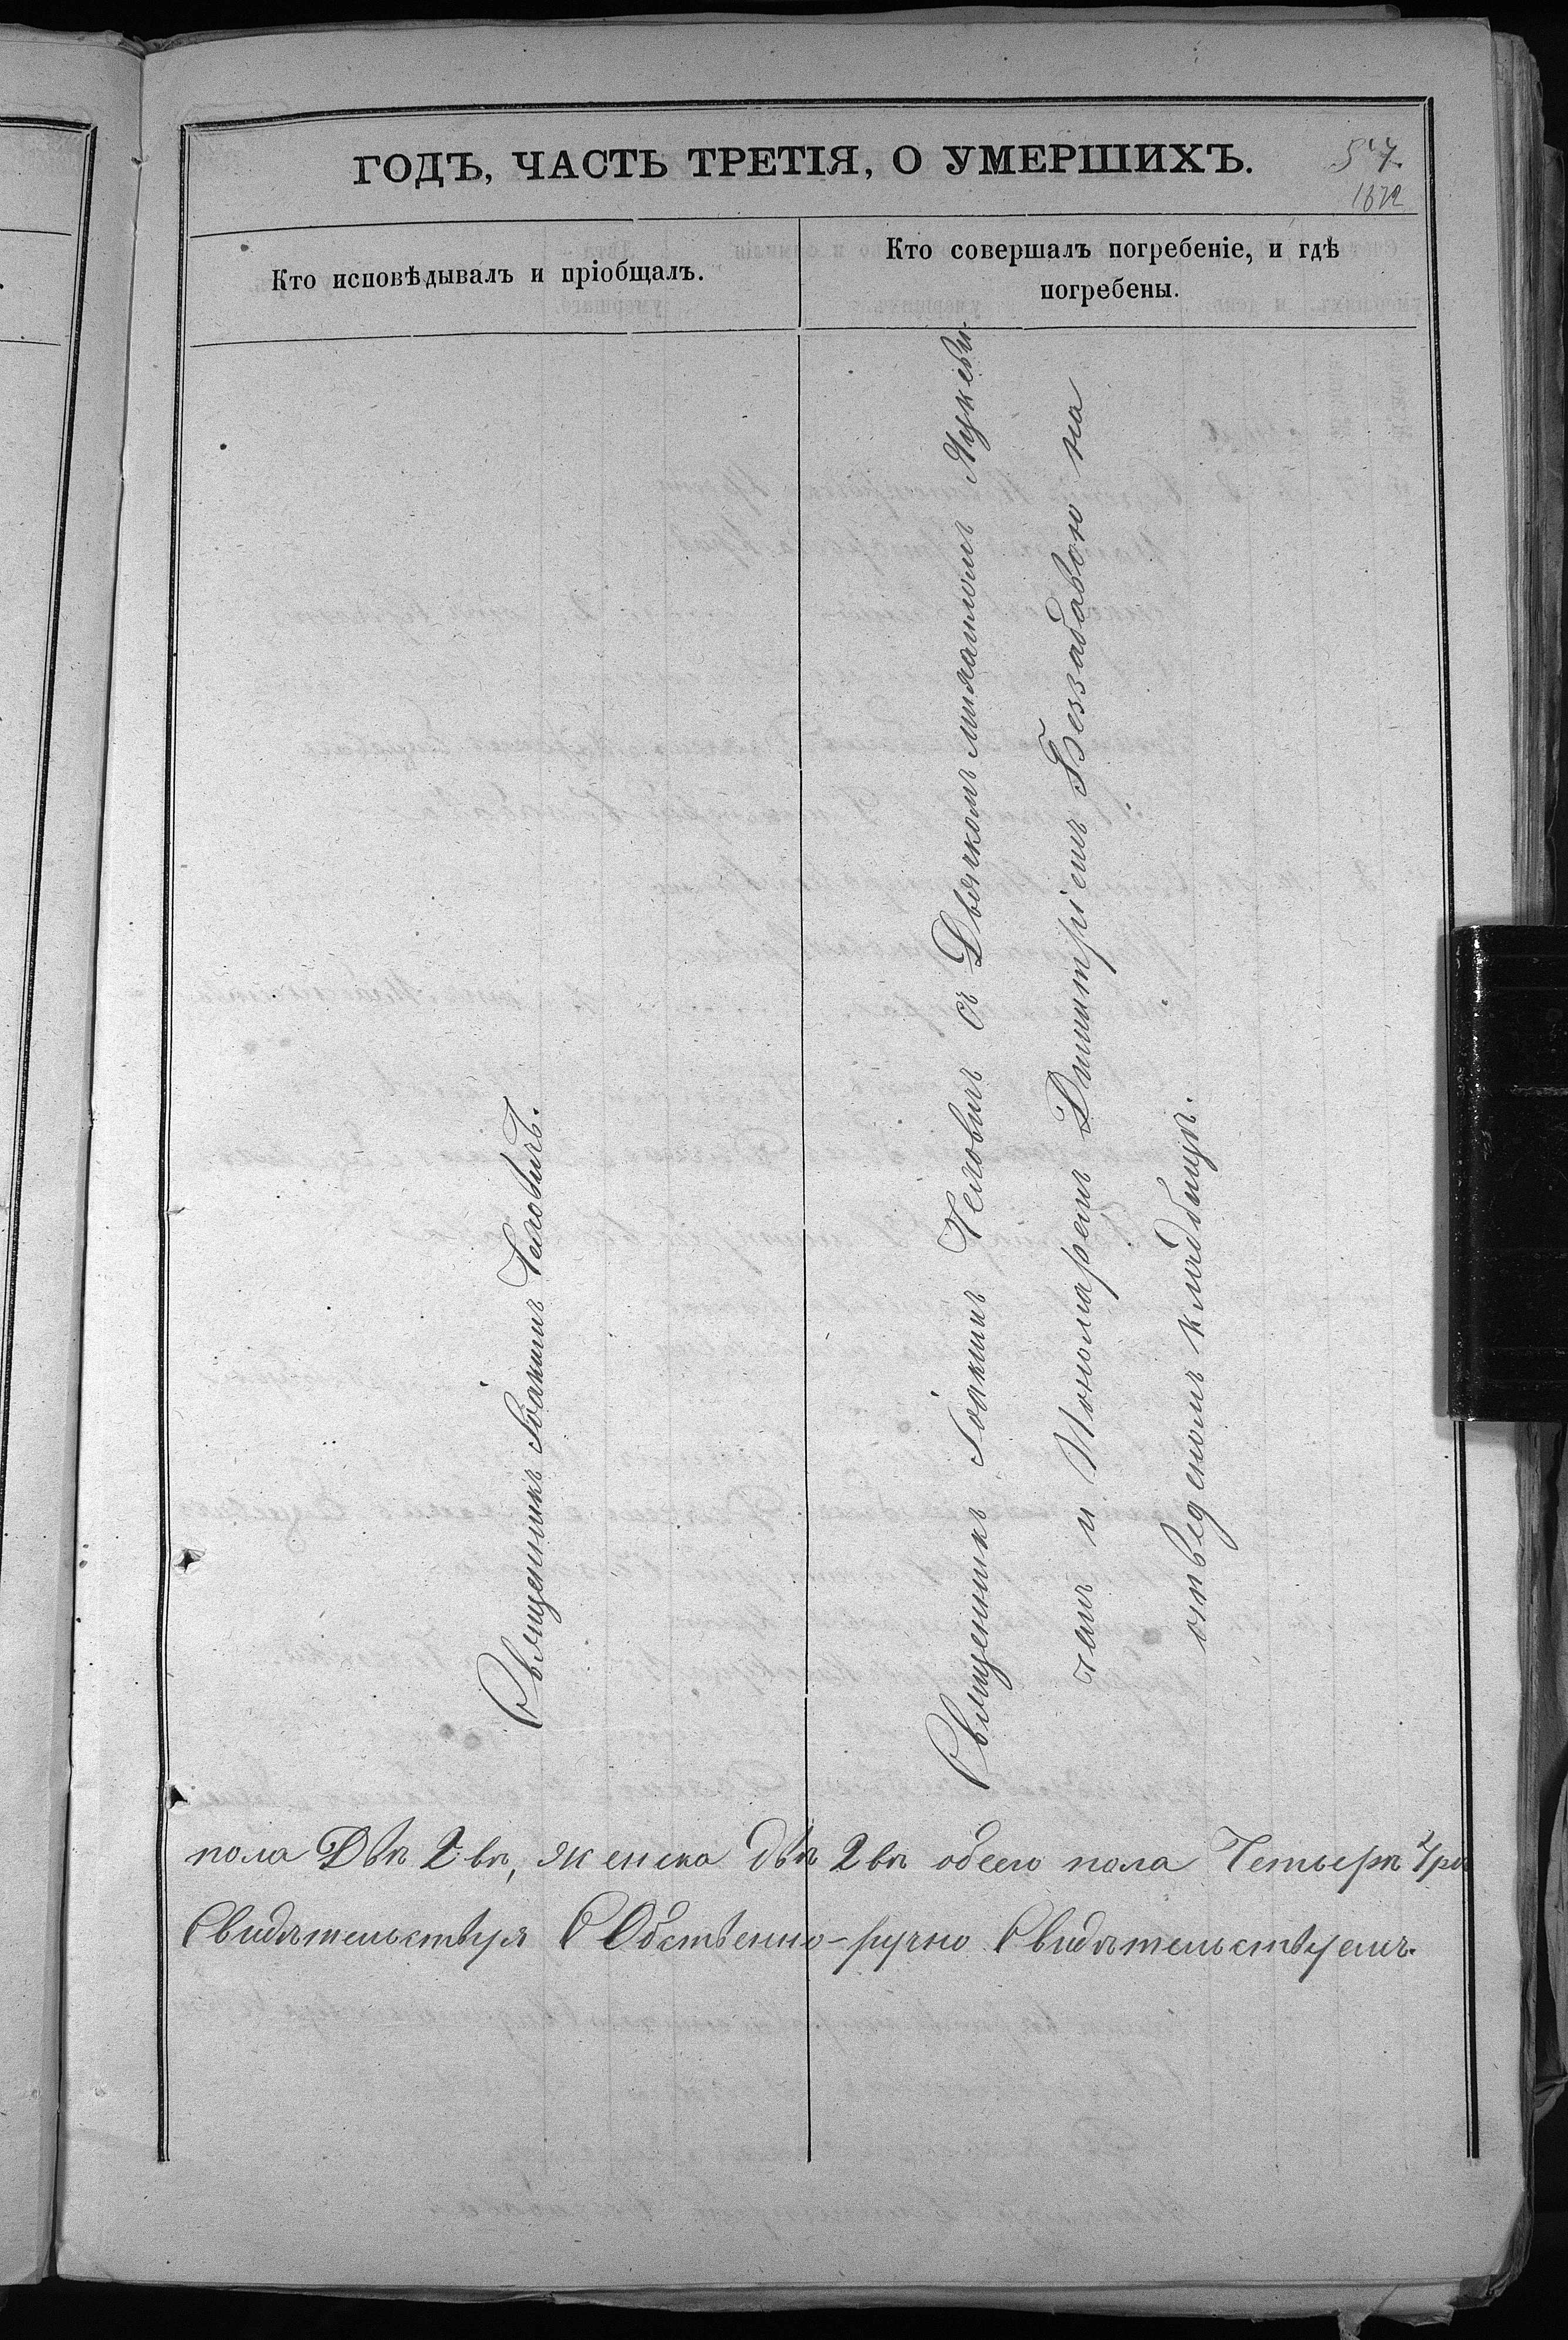 ГОДЪ, ЧАСТЬ ТРЕТІЯ, О УМЕРШИХЪ.
57.
1672
Кто исповѣдывалъ и пріобщалъ.
Кто совершалъ погребеніе, и гдѣ
погребены.
Священникъ Іоакимъ Человичъ.
Священникъ Іоакимъ Челович съ Дьячкомъ Яцкеви-
чемъ и Пономаремъ Димитріемъ Беззабавою на
отведеномъ кладбищѣ.
пола Двѣ 2вѣ, женска двѣ 2вѣ обеего пола Четырѣ 4рѣ
Свидѣтельствуя СОбственно-ручно Свидѣтельствуемъ.